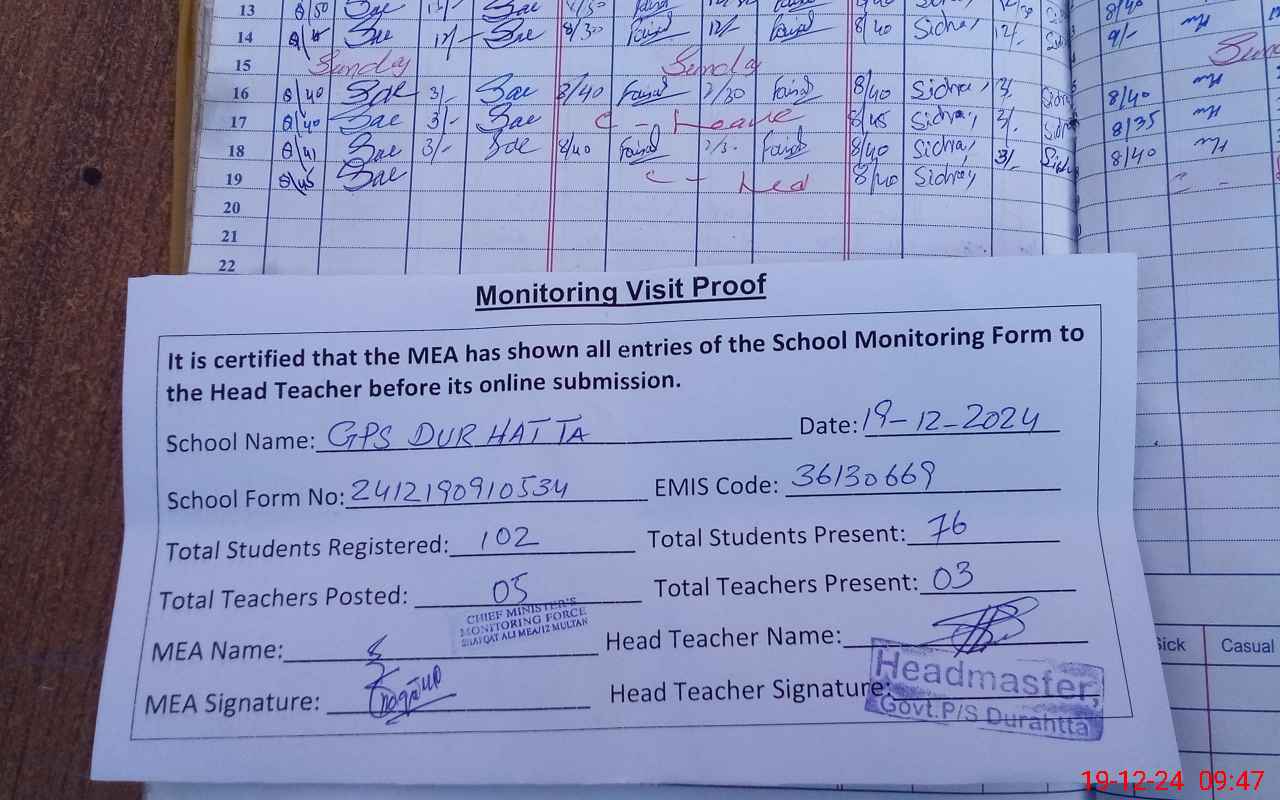 13 8/50 Sae 12/- Sae
14 Sae 12/- Sae 8/30 Faisal 12/- Faisal 8/40 Sidra, 12/- 9/-
15 Sunday Sunday
16 8/40 Sae 3/- Sae 8/40 Faisal 2/30 Faisal 8/40 Sidra, 3/. Sidra 8/40
17 8/40 Sae 3/- Sae C - Leave 8/45 Sidra, 3/. Sidra 8/35
18 8/41 Sae 3/- Sae 8/40 Faisal Faisal 8/40 Sidra, 3/- 8/40
19 8/45 Sae C - 8/40 Sidra,
20
21
22
Monitoring Visit Proof
It is certified that the MEA has shown all entries of the School Monitoring Form to
the Head Teacher before its online submission.
School Name: GPS DURHATTA Date: 19-12-2024
School Form No: 2412190910534 EMIS Code: 36130669
Total Students Registered: 102 Total Students Present: 76
Total Teachers Posted: 05 Total Teachers Present: 03
CHIEF MINISTER'S
MONITORING FORCE
SHAFQAT ALI MEA/12 MULTAN
MEA Name: Head Teacher Name:
MEA Signature: Head Teacher Signature:
Headmaster,
Govt.P/S Durahtta
Sick Casual
19-12-24 09:47